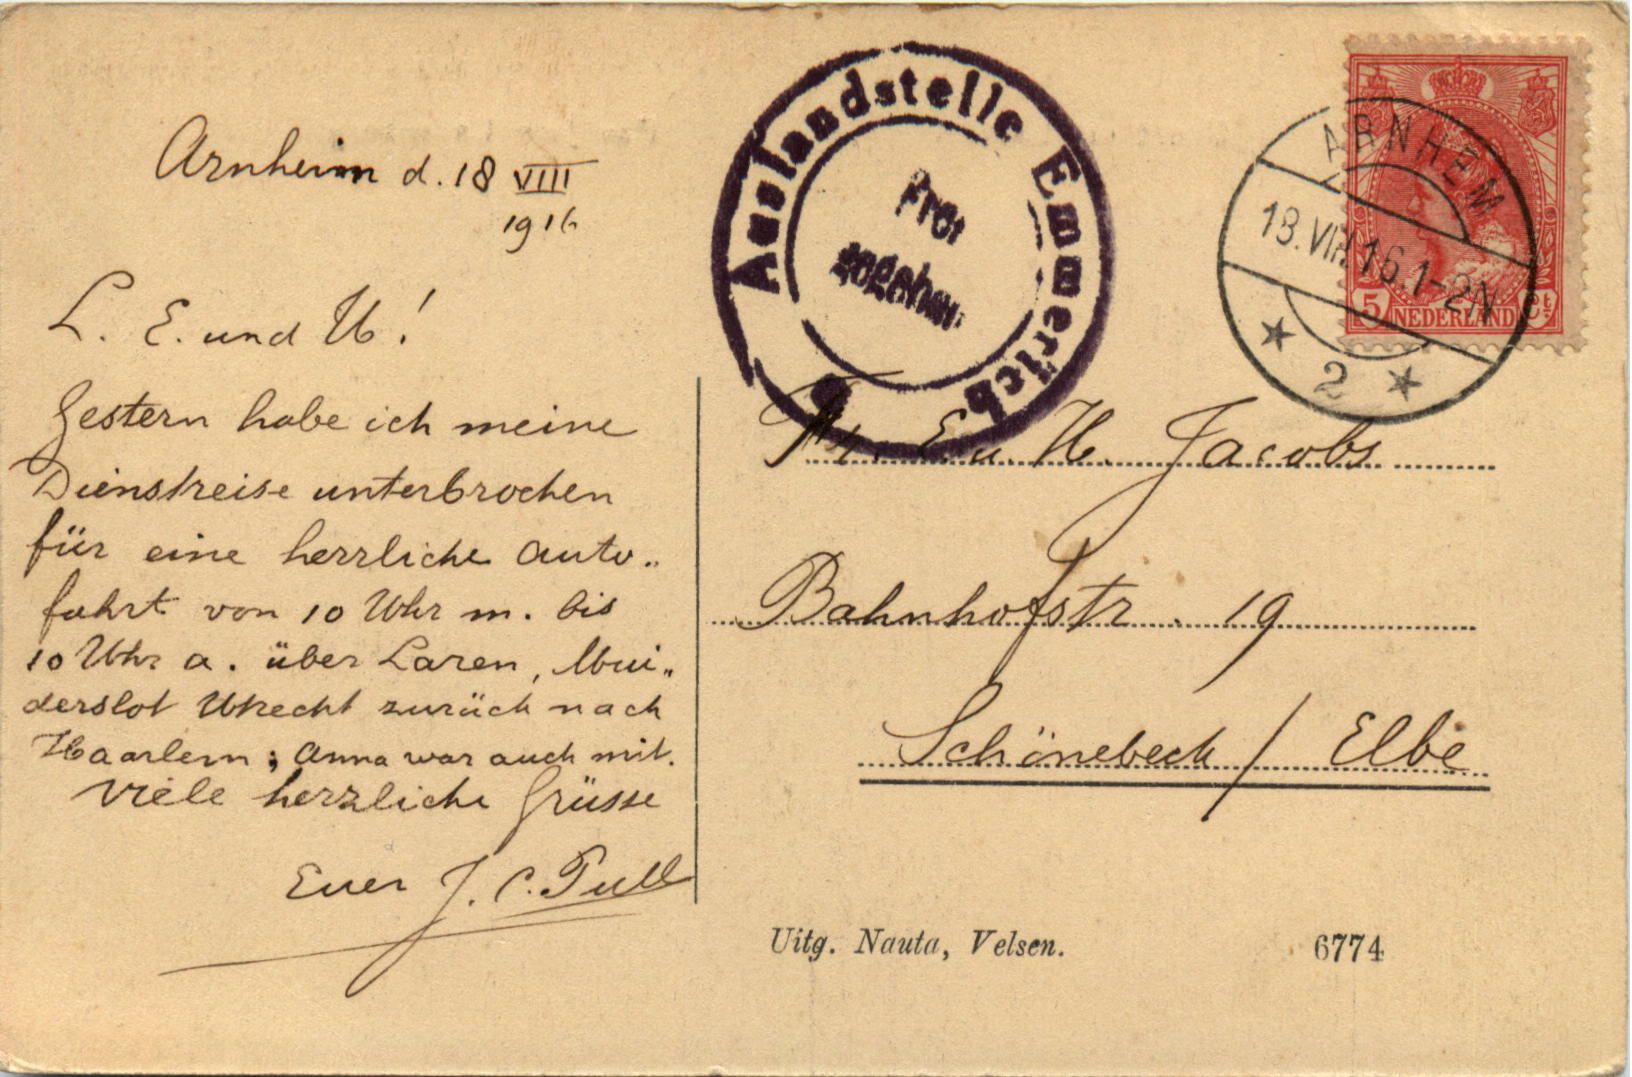 Arnheim d. 18 VIII
1916
L. E. und H!
Gestern habe ich meine
Dienstreise unterbrochen
für eine herrliche Auto„
fahrt von 10 Uhr m. bis
10 Uhr a. über Laren, Mui„
derslot Utrecht zurück nach
Haarlem; Anna war auch mit.
Viele herzliche Grüsse
Euer J. C.
Auslandstelle Emmerich
Frei
gegeben
ARNHEM
18.VIII.16.1-2N
2
5 NEDERLAND ct
Frl. E. u. H. Jacobs
Bahnhofstr. 19
Schönebeck / Elbe
Uitg. Nauta, Velsen.
6774